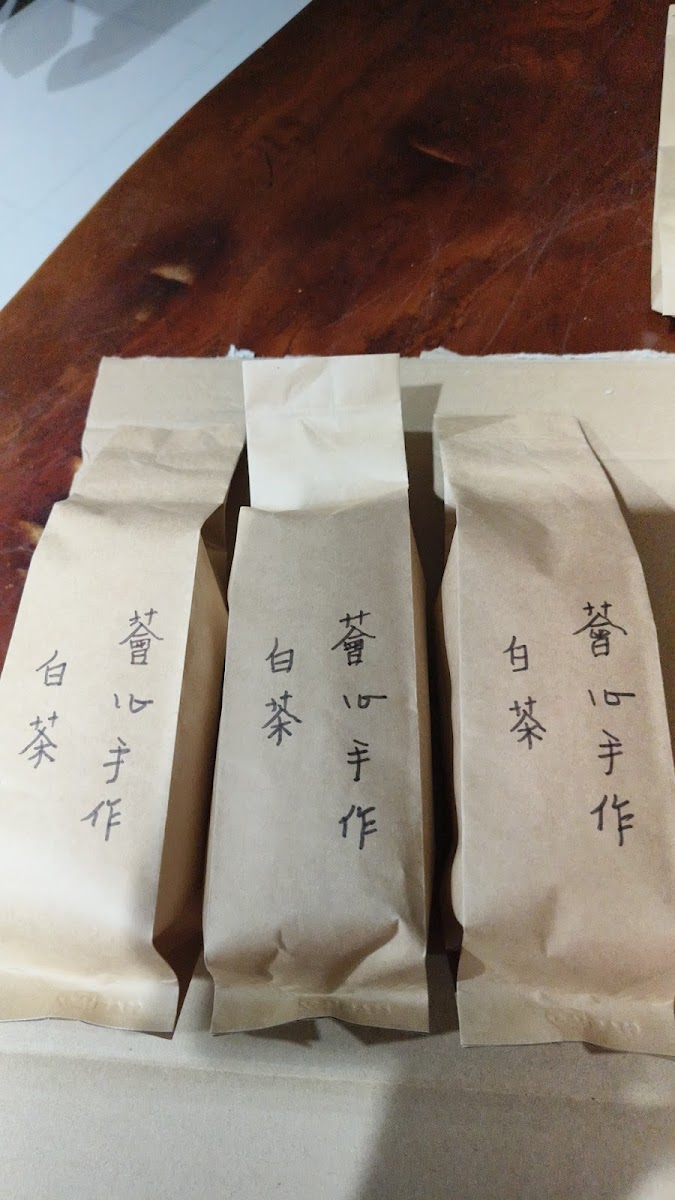 薈心手作
白茶
薈心手作
白茶
薈心手作
白茶